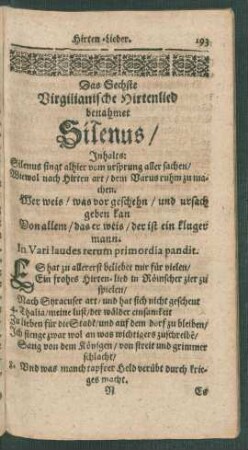 Hirten-Lieder. 193
Das Sechste
Virgilianische Hirtenlied
benahmet
Silenus/
Inhalts:
Silenus singt alhier vom ursprung aller sachen/
Wiewol nach Hirten art/ dem Varus ruhm zu ma-
chen.
Wer weis/ was vor geschehn/ und ursach
geben kan
Von allem/ das er weis/ der ist ein kluger
mann.
In Vari laudes rerum primordia pandit.
ES hat zu allererst beliebt mir für vielen/
Ein frohes Hirten-lied in Römscher zier zu
spielen/
Nach Syracuser art/ und hat sich nicht gescheut
4. Thalia/ meine lust/ der wälder einsamkeit
Zu lieben für die Stadt/ und auf dem dorf zu bleiben/
Ich fienge zwar wol an was wichtigers zuschreibē/
Sang von dem Königen/ von streit und grimmer
schlacht/
8. Und was manch tapfrer Held verübt durch krie-
ges macht.
N Es